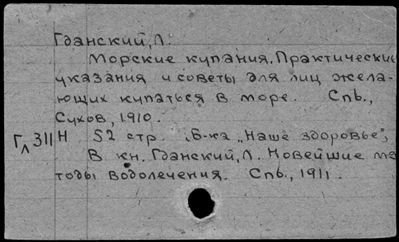 Гданский, Л.
Морские купания. Практические
указания и советы для лиц жела-
ющих купаться в море. Спб.,
Сухов, 1910.
Гл 311 Н 52 стр. Б-ка „Наше здоровье",
В кн. Гданский, Л. Новейшие ме
тоды водолечения. Спб., 1911.